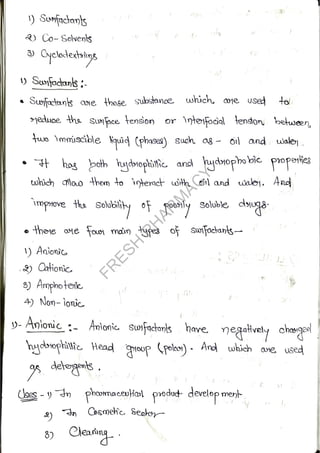 1) Surfactants
2) Co-Solvents
3) Cyclodextrins
1) Surfactants :-
• Surfactants are those substance which are used to
reduce the surface tension or interfacial tension between
two immiscible liquid (phases) such as - oil and water.
• It has both hydrophillic and hydrophobic properties
which allow them to interact with oil and water. And
improve the solubility of poorly soluble drugs.
• there are four main types of surfactants -
1) Anionic
2) Cationic
3) Amphoteric
4) Non-ionic
1)- Anionic :- Anionic surfactants have negatively charged
hydrophillic Head group (polar). And which are used
as detergents.
Uses - 1) In pharmaceutical product development
2) In Cosmetic Sector
3) Cleaning.
FRESH PHARMACY